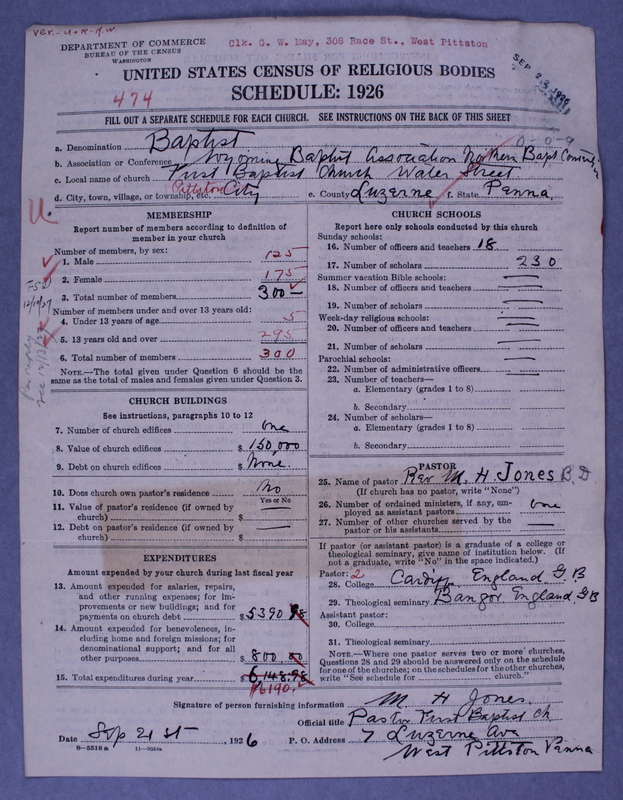 Ver.-U-R-HW
DEPARTMENT OF COMMERCE
BUREAU OF THE CENSUS
WASHINGTON
Clk. G. W. May, 306 Race St., West Pittston
SEP 23 1926
UNITED STATES CENSUS OF RELIGIOUS BODIES
474
SCHEDULE: 1926
FILL OUT A SEPARATE SCHEDULE FOR EACH CHURCH. SEE INSTRUCTIONS ON THE BACK OF THIS SHEET
0-0-9
a. Denomination Baptist
b. Association or Conference Wyoming Baptist Association Northern Bapt Convention
c. Local name of church First Baptist Church Water Street
d. City, town, village, or township, etc. Pittston City e. County Luzerne f. State Penna.
U.
MEMBERSHIP
Report number of members according to definition of member in your church
Number of members, by sex:
1. Male 125
2. Female 175
3. Total number of members 300
Number of members under and over 13 years old:
4. Under 13 years of age 5
5. 13 years old and over 295
6. Total number of members 300
NOTE.—The total given under Question 6 should be the same as the total of males and females given under Question 3.
12/19/27
CHURCH BUILDINGS
See instructions, paragraphs 10 to 12
7. Number of church edifices One
8. Value of church edifices $ 150,000
9. Debt on church edifices $ None.
10. Does church own pastor's residence No
Yes or No
11. Value of pastor's residence (if owned by church) $ —
12. Debt on pastor's residence (if owned by church) $ —
EXPENDITURES
Amount expended by your church during last fiscal year
13. Amount expended for salaries, repairs, and other running expenses; for improvements or new buildings; and for payments on church debt $ 5390 98
14. Amount expended for benevolences, including home and foreign missions; for denominational support; and for all other purposes 800.00
15. Total expenditures during year $ 6,148.98
$6190.
CHURCH SCHOOLS
Report here only schools conducted by this church
Sunday schools:
16. Number of officers and teachers 18
17. Number of scholars 230
Summer vacation Bible schools:
18. Number of officers and teachers —
19. Number of scholars —
Week-day religious schools:
20. Number of officers and teachers —
21. Number of scholars —
Parochial schools:
22. Number of administrative officers —
23. Number of teachers—
a. Elementary (grades 1 to 8) —
b. Secondary —
24. Number of scholars—
a. Elementary (grades 1 to 8) —
b. Secondary —
PASTOR
25. Name of pastor Rev M. H Jones B. D
(If church has no pastor, write "None")
26. Number of ordained ministers, if any, employed as assistant pastors One
27. Number of other churches served by the pastor or his assistants —
If pastor (or assistant pastor) is a graduate of a college or theological seminary, give name of institution below. (If not a graduate, write "No" in the space indicated.)
Pastor: 2
28. College Cardiff England G. B
29. Theological seminary Bangor England G B
Assistant pastor:
30. College
31. Theological seminary
NOTE.—Where one pastor serves two or more churches, Questions 28 and 29 should be answered only on the schedule for one of the churches; on the schedules for the other churches, write "See schedule for church."
Signature of person furnishing information M H Jones.
Official title Pastor First Baptist Ch
Date Sep 21st, 1926 P. O. Address 7 Luzerne Ave
West Pittston Penna
8—5518 a